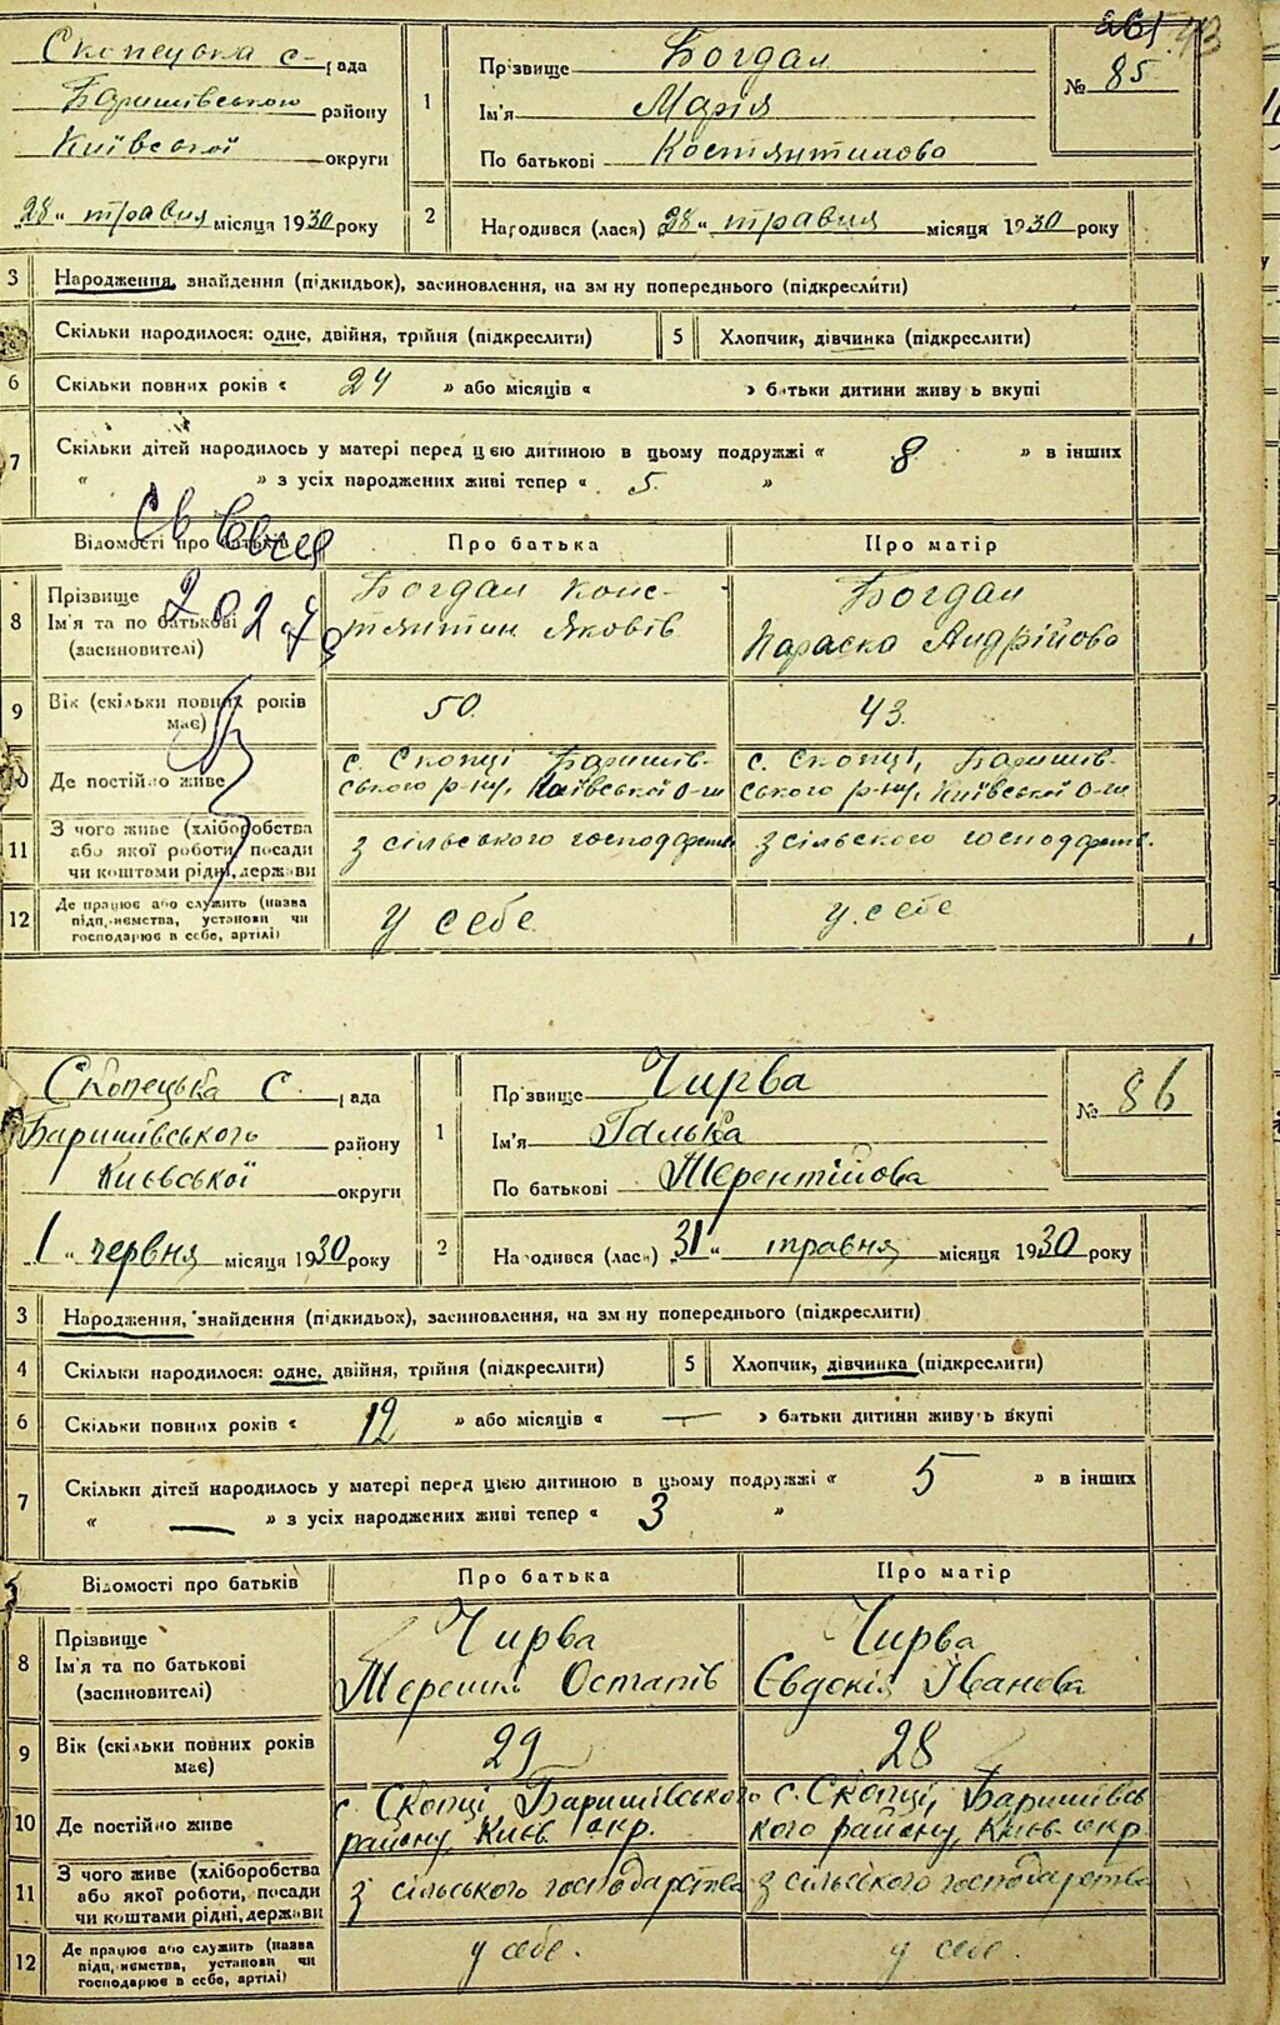 43
Скопецька с- рада
Баришівською району
Київської округи
„28" травня місяця 1930 року
1
Прізвище Богдан
Ім'я Марія
По батькові Костянтинова
№ 85
2
Народився (лася) 28 " травня місяця 1930 року
3 Народження, знайдення (підкидьок), засиновлення, на зміну попереднього (підкреслити)
Скільки народилося: одне, двійня, трійня (підкреслити) 5 Хлопчик, дівчинка (підкреслити)
6 Скільки повних років « 24 » або місяців « » батьки дитини живуть вкупі
7 Скільки дітей народилось у матері перед цією дитиною в цьому подружжі « 8 » в інших
« » з усіх народжених живі тепер « 5 »
Відомості про батьків Про батька Про матір
8 Прізвище
Ім'я та по батькові
(засиновителі)
Богдан Конс-
тянтин Яковів
Богдан
Параска Андрійова
9 Вік (скільки повних років
має)
50. 43.
10 Де постійно живе
с. Скопці Баришів-
ського р-ну, Київської о-ги
с. Скопці, Баришів-
ського р-ну, Київської о-ги
11 З чого живе (хліборобства
або якої роботи, посади
чи коштами рідні, держави
з сільського господарств
з сільского господарств.
12 Де працює або служить (назва
підприємства, установи чи
господарює в себе, артілі)
у себе. у себе
Скопецька с. рада
Баришівського району
Києвської округи
„1 " червня місяця 1930 року
1
Прізвище Чирва
Ім'я Галька
По батькові Терентійова
№ 86
2
Народився (лася) „31 " травня місяця 1930 року
3 Народження, знайдення (підкидьок), засиновлення, на зміну попереднього (підкреслити)
4 Скільки народилося: одне, двійня, трійня (підкреслити) 5 Хлопчик, дівчинка (підкреслити)
6 Скільки повних років « 12 » або місяців « — » батьки дитини живуть вкупі
7 Скільки дітей народилось у матері перед цією дитиною в цьому подружжі « 5 » в інших
« — » з усіх народжених живі тепер « 3 »
Відомості про батьків Про батька Про матір
8 Прізвище
Ім'я та по батькові
(засиновителі)
Чирва
Терешко Остапів
Чирва
Євдокія Іванова
9 Вік (скільки повних років
має)
29 28
10 Де постійно живе
с. Скопці Баришівського
району, Києв. окр.
с. Скопці, Баришівсь
кого району, Києв. окр.
11 З чого живе (хліборобства
або якої роботи, посади
чи коштами рідні, держави
з сільського господарства
з сільського господарства
12 Де працює або служить (назва
підприємства, установи чи
господарює в себе, артілі)
у себе. у себе.